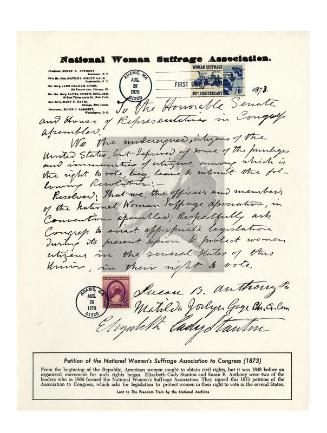 National Woman Suffrage Association.
ADAMS, MA
AUG
26
1970
01220
FIRST
WOMAN SUFFRAGE
50th ANNIVERSARY
1873.
To the Honorable Senate
and House of Representatives in Congress
assembled,
We the undersigned, citizens of the
United States, but deprived of some of the privileges
and immunities of citizens, among which is
the right to vote, beg leave to submit the fol-
lowing Resolution:
Resolved; That we the officers and members
of the National Woman Suffrage Association, in
Convention assembled, Respectfully ask
Congress to enact appropriate legislation
during its present session to protect women
citizens in the several States of this
Union, in their right to vote.
Susan B. Anthony
Matilda Joslyn Gage
Elizabeth Cady Stanton
ADAMS, MA
AUG
26
1970
01220
Petition of the National Women's Suffrage Association to Congress (1873)
From the beginning of the Republic, American women sought to obtain civil rights, but it was 1848 before an
organized movement for such rights began. Elizabeth Cady Stanton and Susan B. Anthony were two of the
leaders who in signed this 1873 petition of the
Association to Congress, which asks for legislation to protect women in their right to vote in the several States.
Lent to The Freedom Train by the National Archives